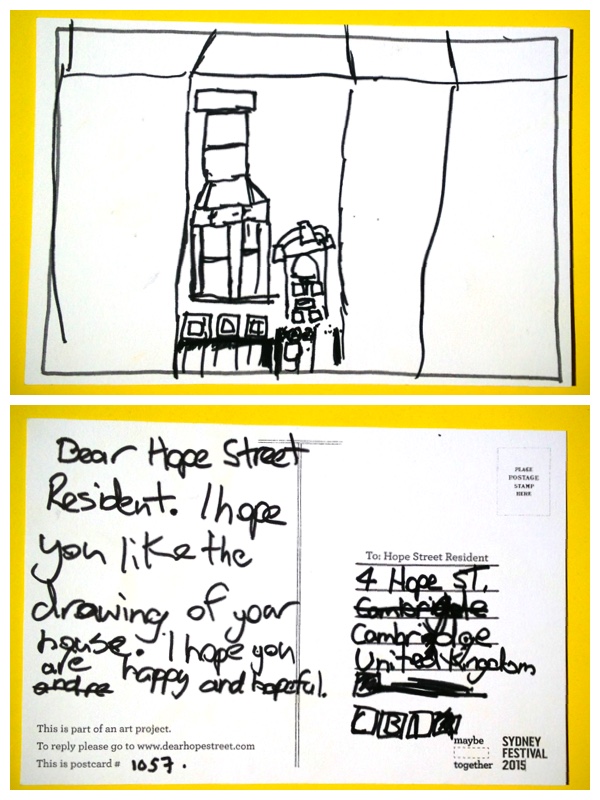 Dear Hope Street
Resident. I hope
you like the
drawing of your
house. I hope you
are happy and hopeful.
This is part of an art project.
To reply please go to www.dearhopestreet.com
This is postcard # 1057.
PLACE
POSTAGE
STAMP
HERE
To: Hope Street Resident
4 Hope ST.
Cambridge
United Kingdom
CB1
maybe
together
SYDNEY
FESTIVAL
2015